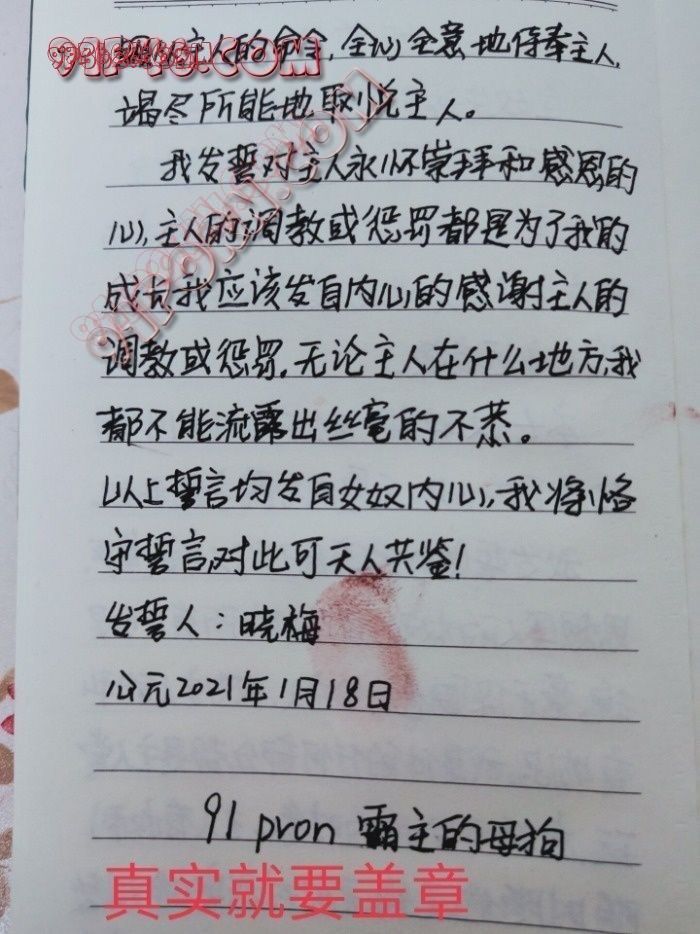 91P48.COM
从主人的命令,全心全意地侍奉主人,
竭尽所能地取悦主人。
我发誓对主人永怀崇拜和感恩的
心,主人的调教或惩罚都是为了我的
成长我应该发自内心的感谢主人的
调教或惩罚,无论主人在什么地方,我
都不能流露出丝毫的不恭。
以上誓言均发自女奴内心,我将恪
守誓言,对此可天人共鉴!
发誓人:晓梅
公元2021年1月18日
91 pron 霸主的母狗
真实就要盖章